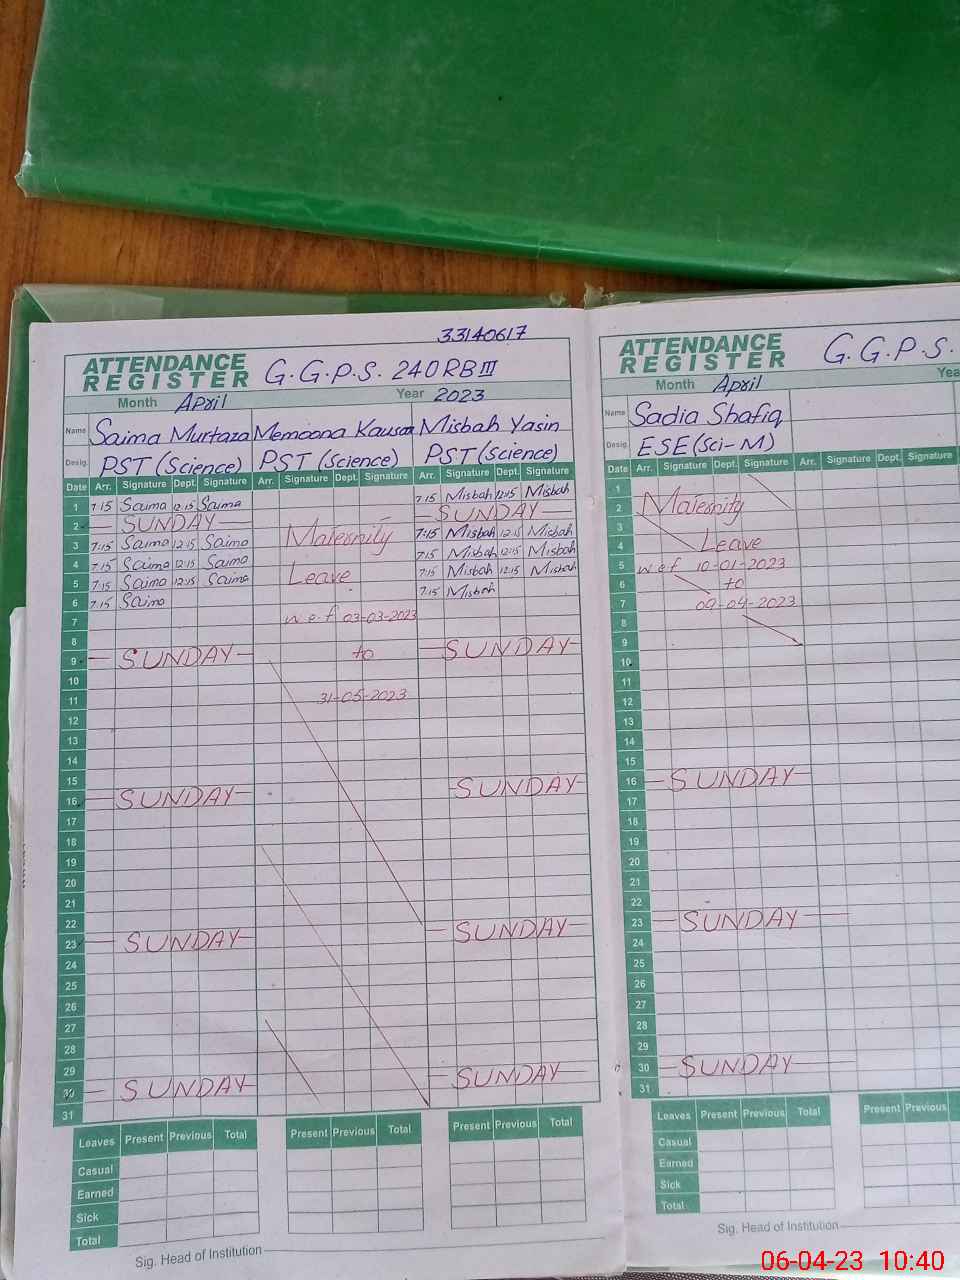 33140617
ATTENDANCE REGISTER G.G.P.S. 240RBIII
Month April Year 2023
Name Saima Murtaza Memoona Kausar Misbah Yasin
Desig. PST (Science) PST (Science) PST (Science)
Date Arr. Signature Dept. Signature Arr. Signature Dept. Signature Arr. Signature Dept. Signature
1 7:15 Saima 12:15 Saima 7:15 Misbah 12:15 Misbah
2 SUNDAY SUNDAY
3 7:15 Saima 12:15 Saima Maternity 7:15 Misbah 12:15 Misbah
4 7:15 Saima 12:15 Saima 7:15 Misbah 12:15 Misbah
5 7:15 Saima 12:15 Saima Leave 7:15 Misbah 12:15 Misbah
6 7:15 Saima 7:15 Misbah
7 w.e.f 03-03-2023
8
9 SUNDAY to SUNDAY
10
11 31-05-2023
12
13
14
15
16 SUNDAY SUNDAY
17
18
19
20
21
22
23 SUNDAY SUNDAY
24
25
26
27
28
29
30 SUNDAY SUNDAY
31
Leaves Present Previous Total Present Previous Total Present Previous Total
Casual
Earned
Sick
Total
Sig. Head of Institution
ATTENDANCE REGISTER G.G.P.S.
Month April Yea
Name Sadia Shafiq
Desig. ESE (Sci-M)
Date Arr. Signature Dept. Signature Arr. Signature Dept. Signature
1
2 Maternity
3
4 Leave
5 w.e.f 10-01-2023
6 to
7 09-04-2023
8
9
10
11
12
13
14
15
16 SUNDAY
17
18
19
20
21
22
23 SUNDAY
24
25
26
27
28
29
30 SUNDAY
31
Leaves Present Previous Total Present Previous
Casual
Earned
Sick
Total
Sig. Head of Institution
06-04-23 10:40